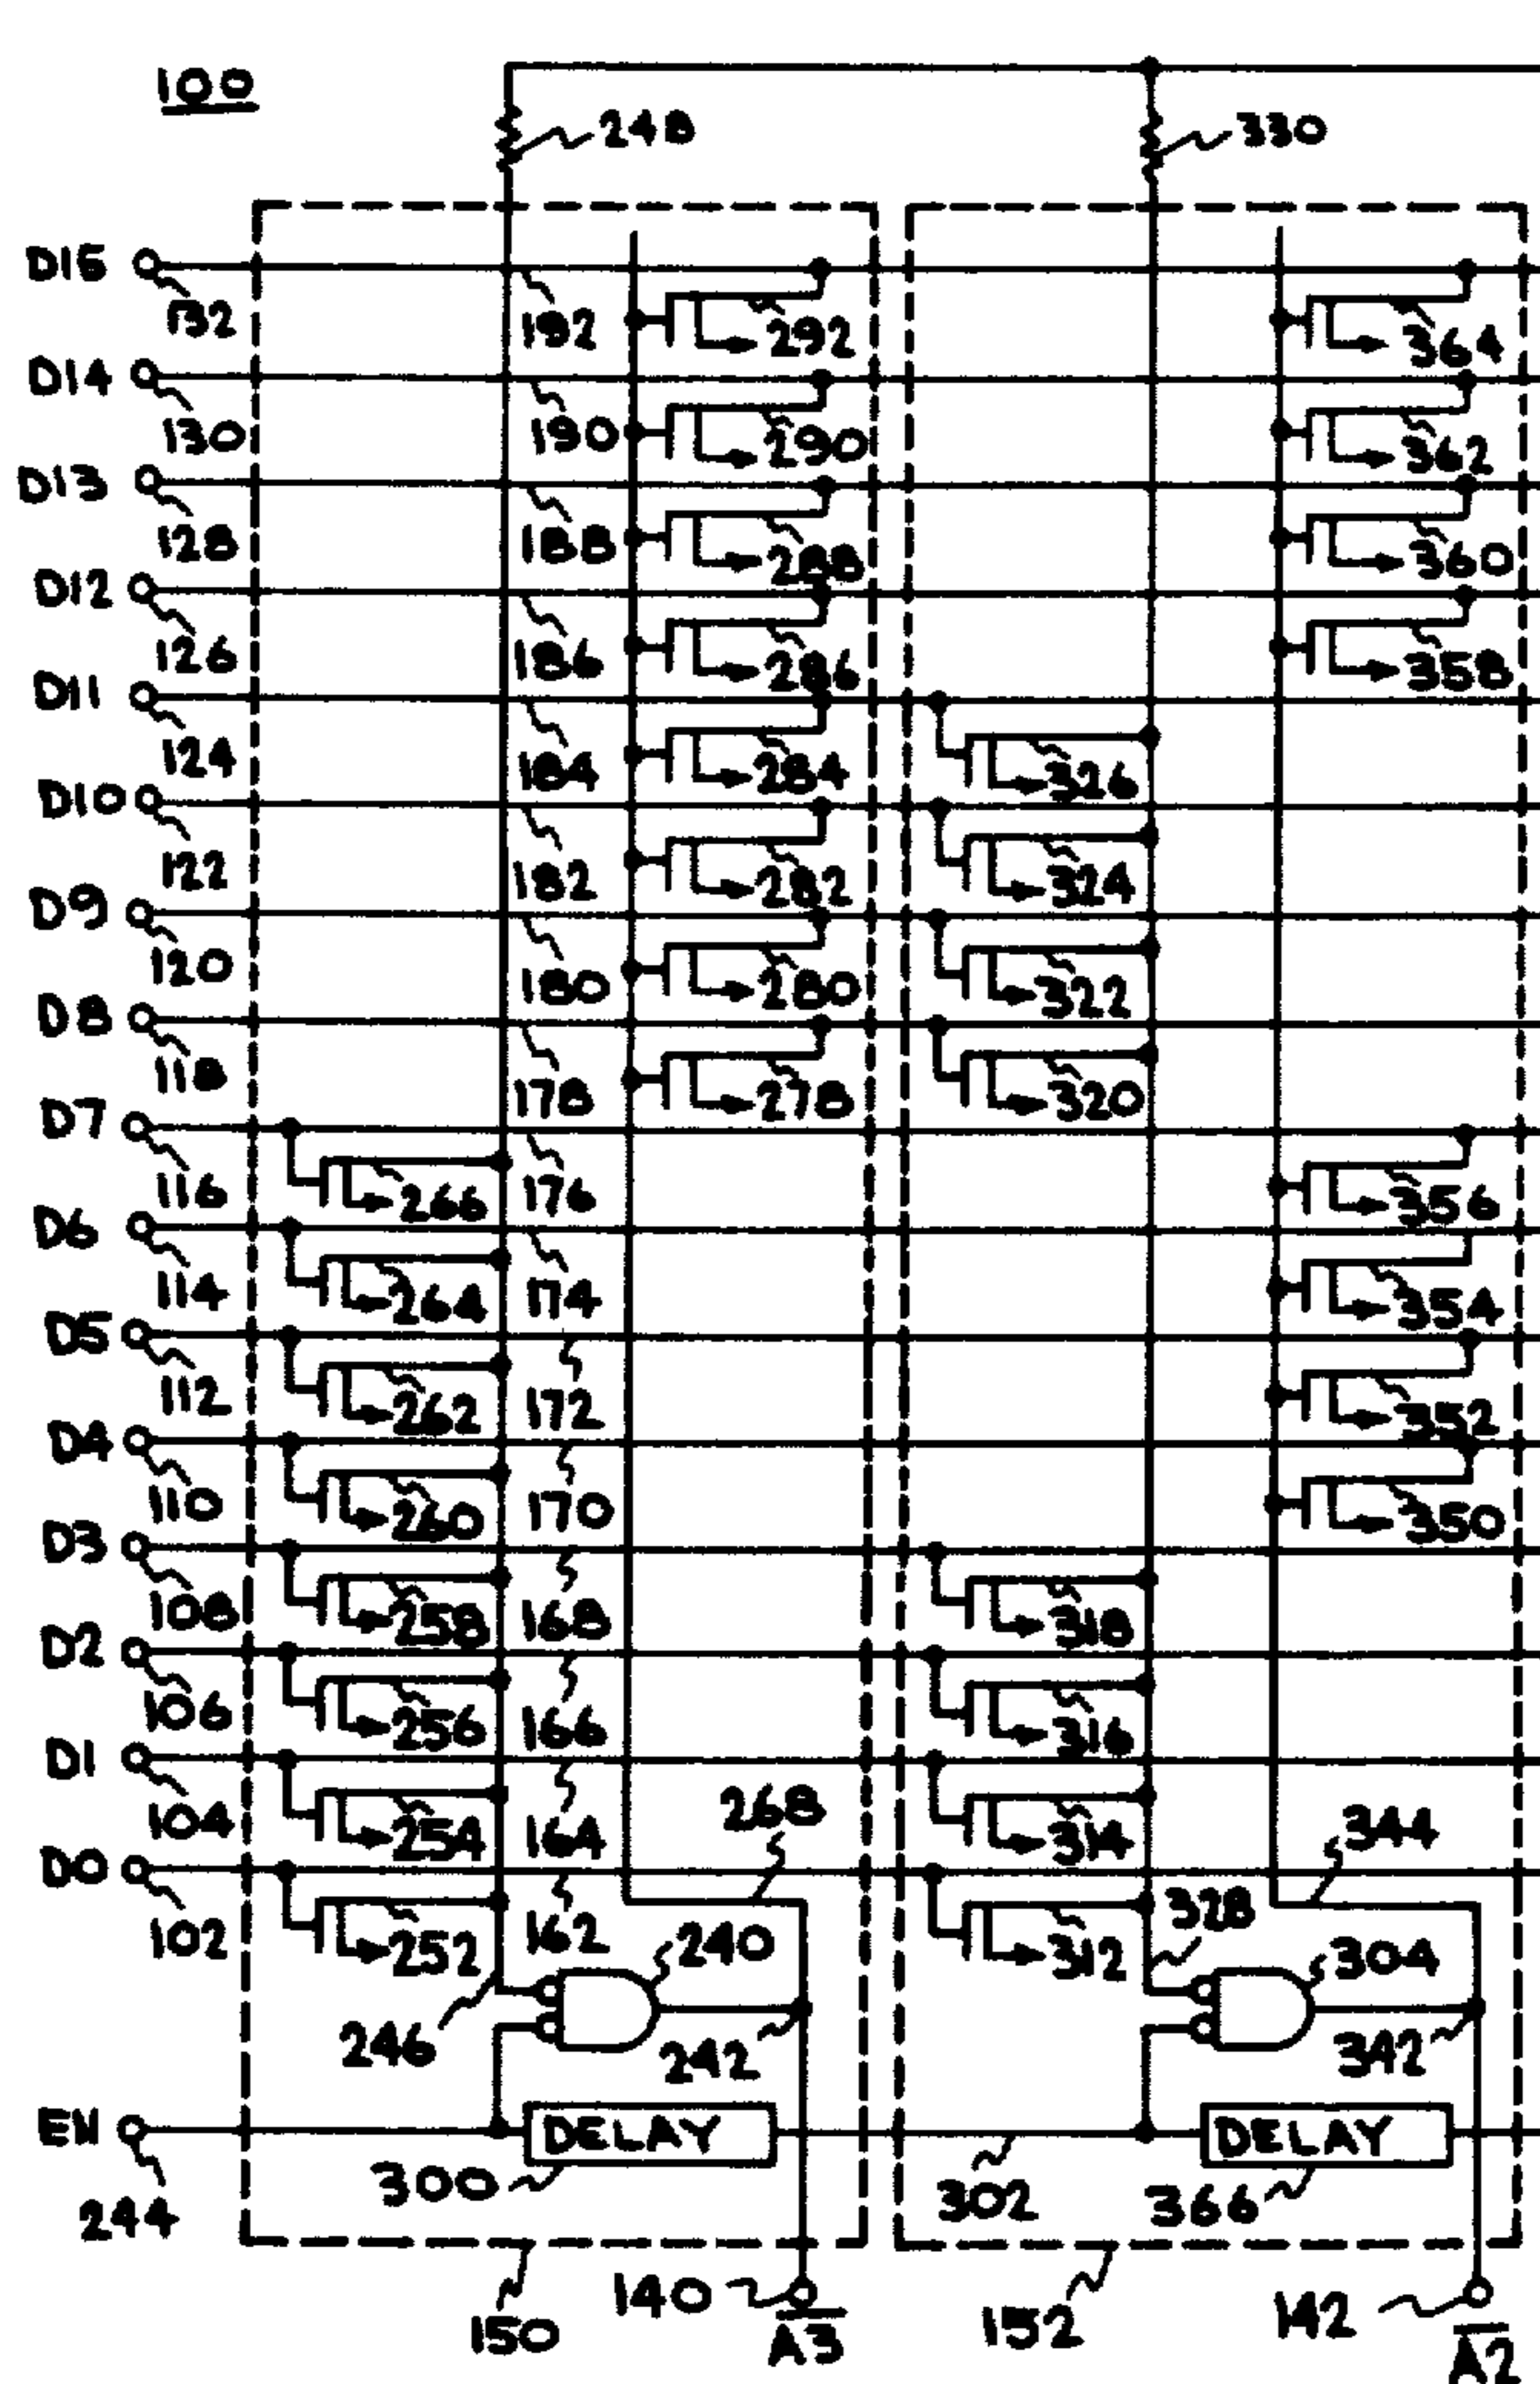 100
248
330
D15
132
192
292
364
D14
130
190
290
362
D13
128
188
288
360
D12
126
186
286
358
D11
124
184
284
326
D10
122
182
282
324
D9
120
180
280
322
D8
118
178
278
320
D7
116
266
176
356
D6
114
264
174
354
D5
112
262
172
352
D4
110
260
170
350
D3
108
258
168
318
D2
106
256
166
316
D1
104
254
164
268
314
344
D0
102
252
162
240
312
328
304
246
242
342
EN
DELAY
DELAY
244
300
302
366
150
140
A3
152
142
A2